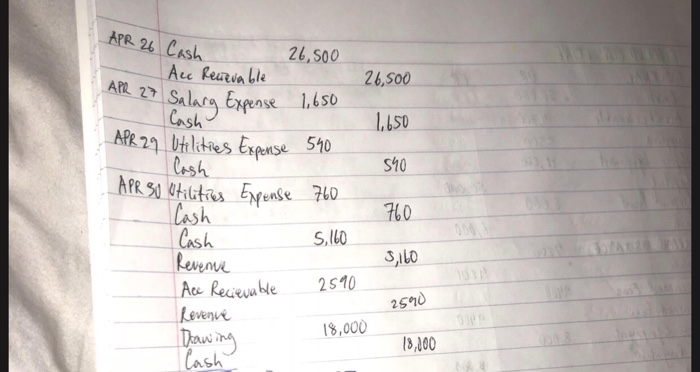 APR 26 Cash 26,500
Acc Recievable 26,500
APR 27 Salary Expense 1,650
Cash 1,650
APR 29 Utilities Expense 540
Cash 540
APR 30 Utilities Expense 760
Cash 760
Cash 5,160
Revenue 5,160
Acc Recievable 2590
Revenue 2590
Drawing 18,000
Cash 18,000